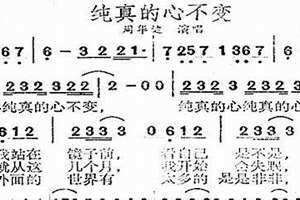 纯真的心不变
周华健 演唱
67 | 6 - 3 2 2 21· | 7257 1367 |
232 322 | 2 - 0 0 | 232 322
纯真的心不变, 纯真的心不
612 | 2333 3 | 0612 | 2333
我站在 镜子前, 看自己 是不是,
就从这 几个月, 我开始 会失眠,
外面的 世界有 太多的 是是非非,